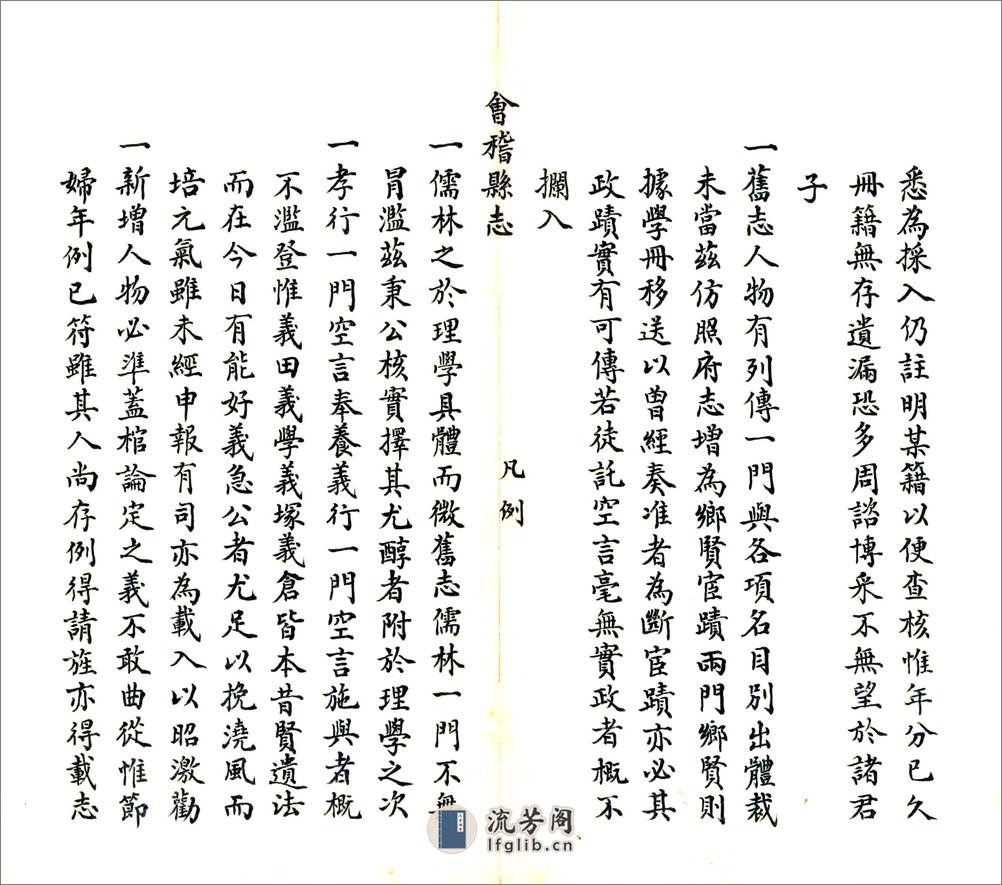 悉為採入仍註明某籍以便查核惟年分已久
冊籍無存遺漏恐多周諮博采不無望於諸君
子
一舊志人物有列傳一門與各項名目別出體裁
未當茲仿照府志增為鄉賢宦蹟兩門鄉賢則
據學冊移送以曾經奏准者為斷宦蹟亦必其
政蹟實有可傳若徒託空言毫無實政者概不
攔入
會稽縣志
凡例
一儒林之於理學具體而微舊志儒林一門不無
冐濫茲秉公核實擇其尤醇者附於理學之次
一孝行一門空言奉養義行一門空言施與者概
不濫登惟義田義學義塚義倉皆本昔賢遺法
而在今日有能好義急公者尤足以挽澆風而
培元氣雖未經申報有司亦為載入以昭激勸
一新增人物必準蓋棺論定之義不敢曲從惟節
婦年例已符雖其人尚存例得請旌亦得載志
流芳阁
lfglib.cn